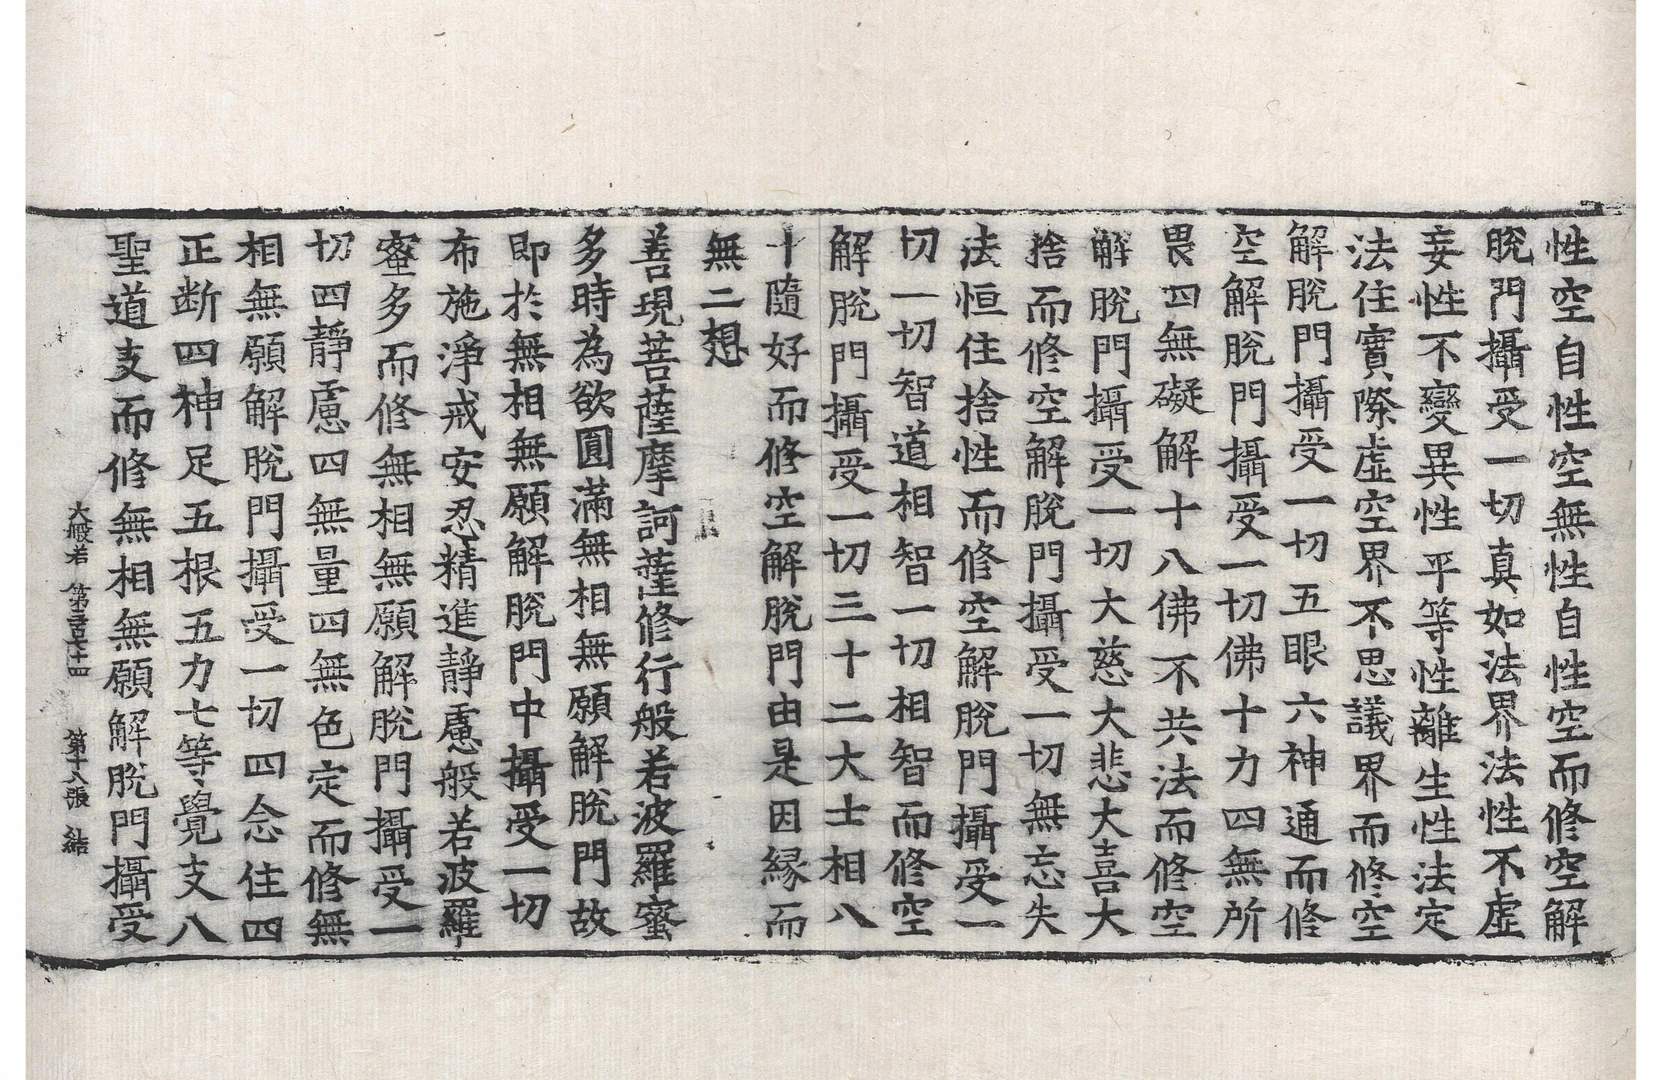 性空自性空無性自性空而修空解
脫門攝受一切真如法界法性不虛
妄性不變異性平等性離生性法定
法住實際虛空界不思議界而修空
解脫門攝受一切五眼六神通而修
空解脫門攝受一切佛十力四無所
畏四無礙解十八佛不共法而修空
解脫門攝受一切大慈大悲大喜大
捨而修空解脫門攝受一切無忘失
法恒住捨性而修空解脫門攝受一
切一切智道相智一切相智而修空
解脫門攝受一切三十二大士相八
十隨好而修空解脫門由是因縁而
無二想
善現菩薩摩訶薩修行般若波羅蜜
多時為欲圓滿無相無願解脫門故
即於無相無願解脫門中攝受一切
布施淨戒安忍精進靜慮般若波羅
蜜多而修無相無願解脫門攝受一
切四靜慮四無量四無色定而修無
相無願解脫門攝受一切四念住四
正断四神足五根五力七等覺支八
聖道支而修無相無願解脫門攝受
大般若 第三百七十四 第十八張 結